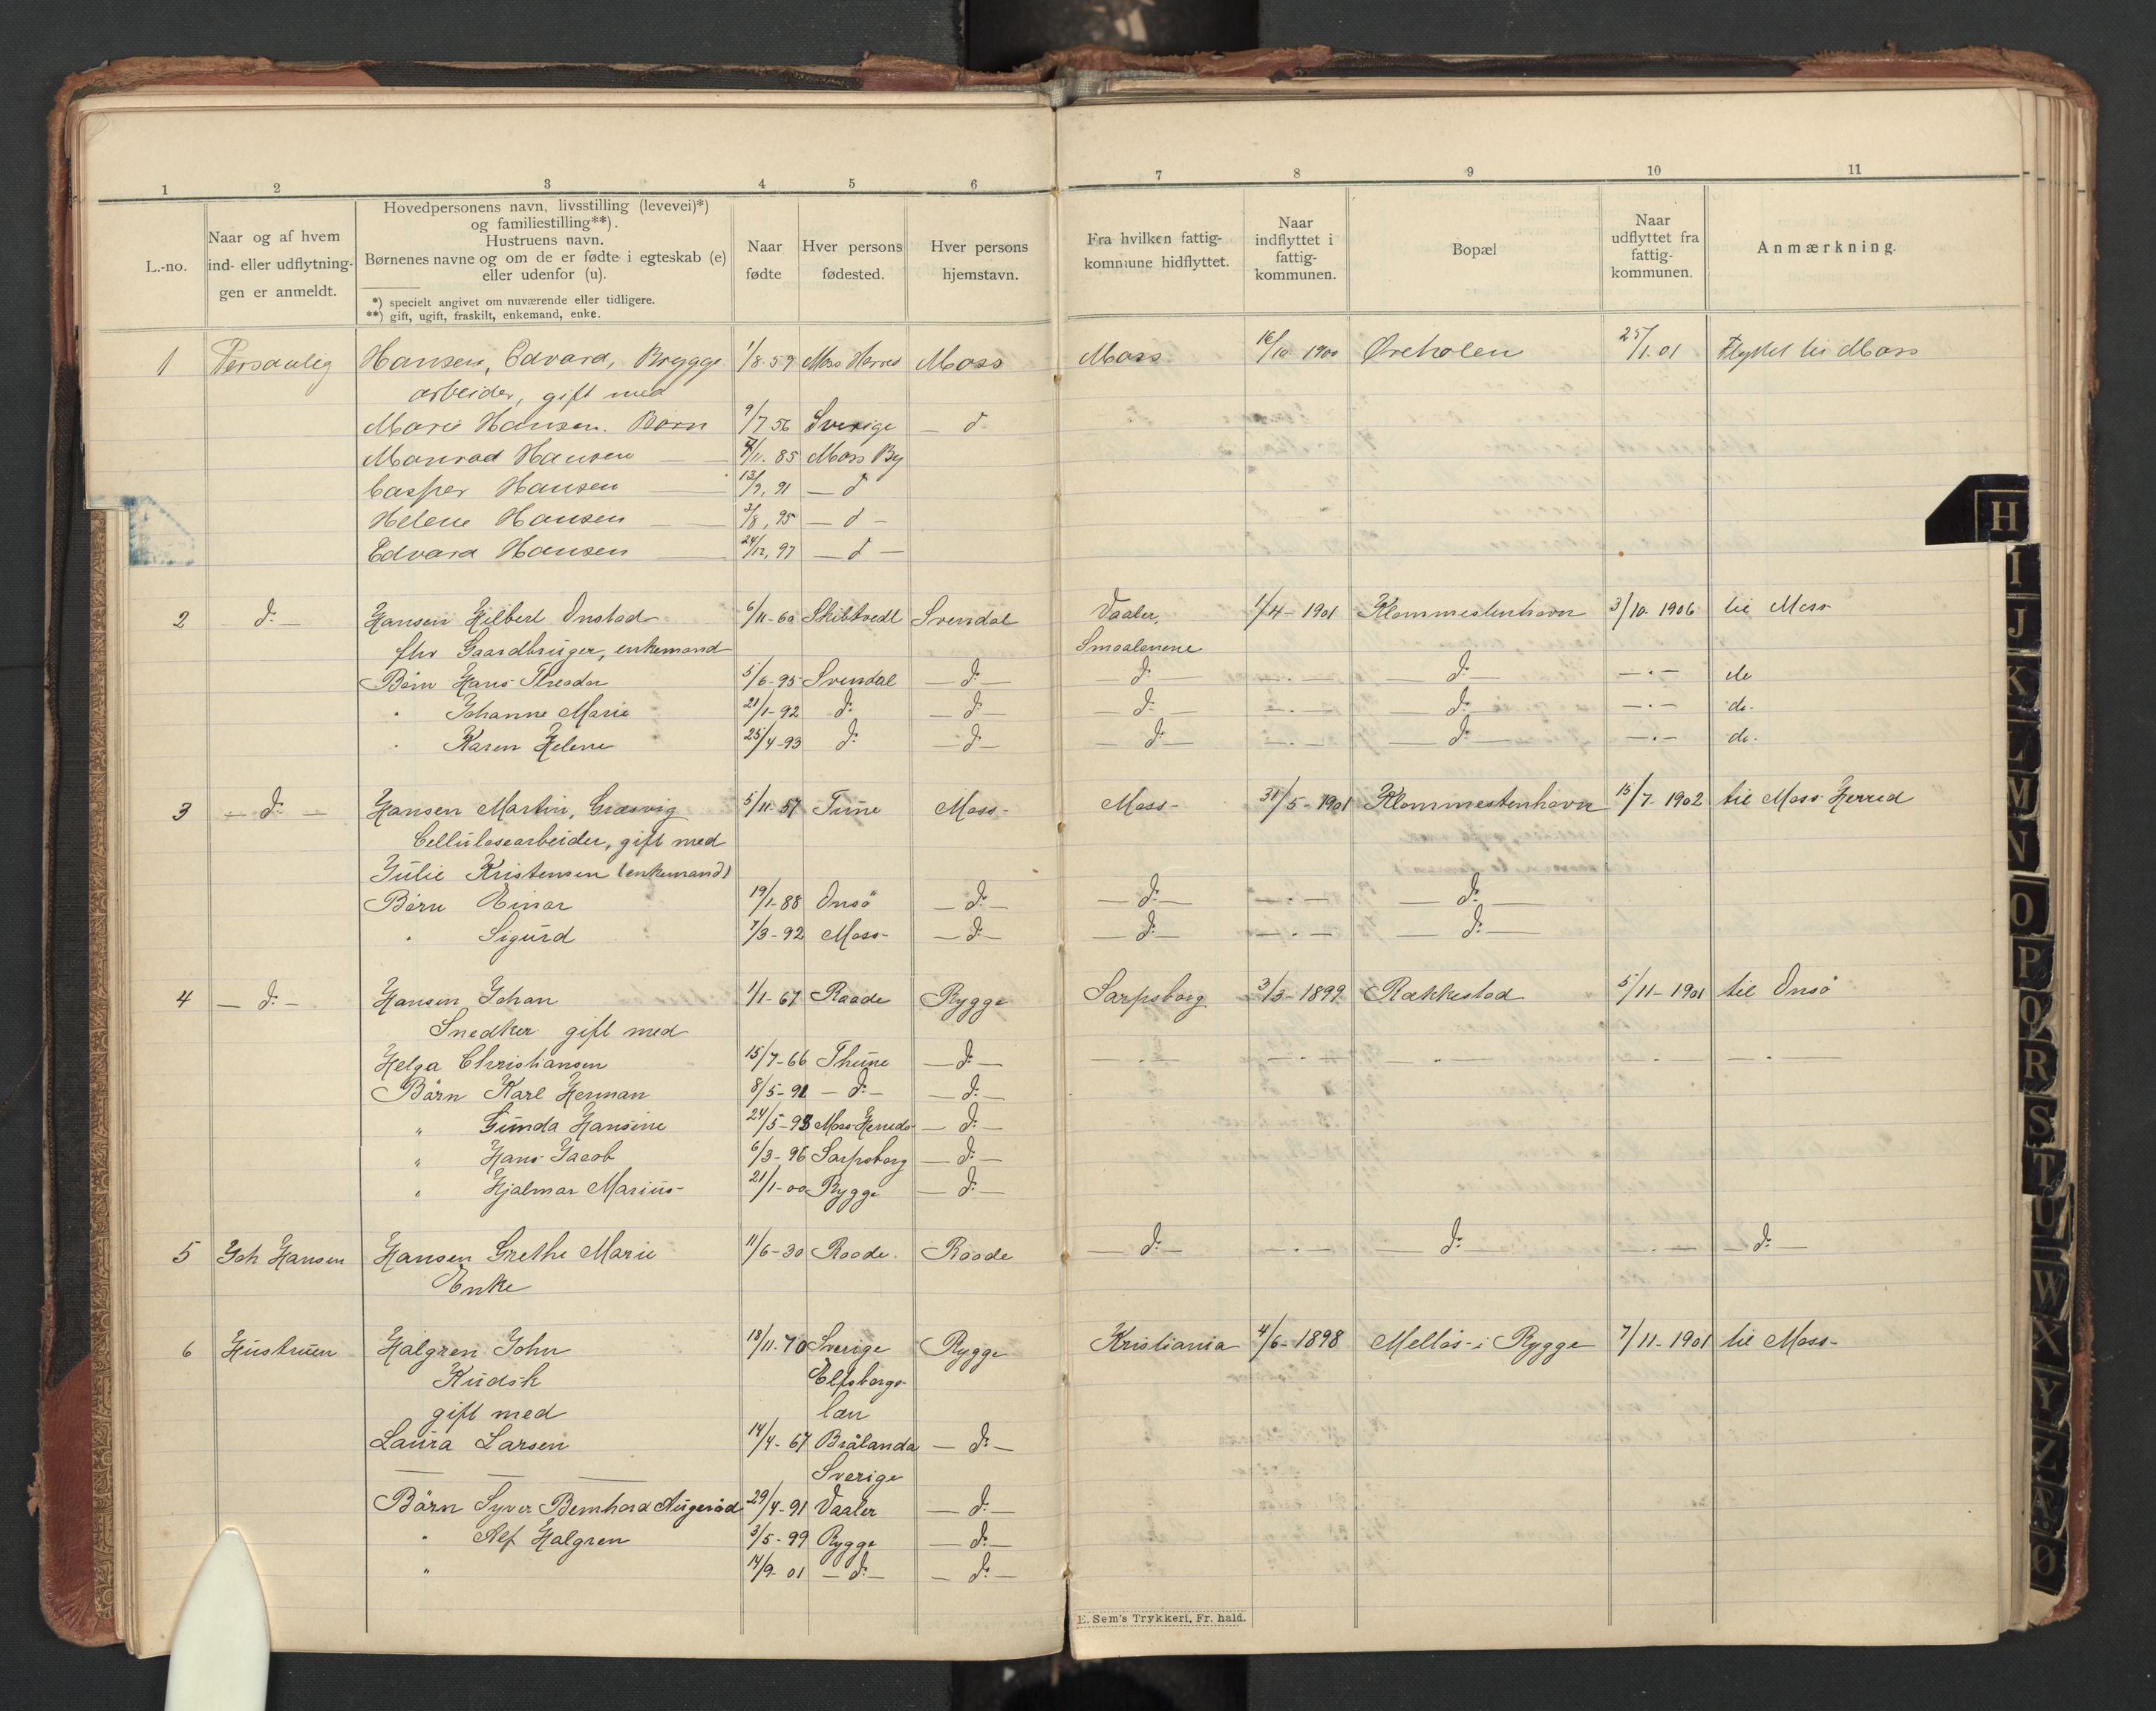 1 2 3 4 5 6 7 8 9 10 11
L.-no.
Naar og af hvem
ind- eller udflytnin-
gen er anmeldt.
Hovedpersonens navn, livsstilling (levevei)*)
og familiestilling**).
Hustruens navn.
Børnenes navne og om de er fødte i egteskab (e)
eller udenfor (u).
*) specielt angivet om nuværende eller tidligere.
**) gift, ugift, fraskilt, enkemand, enke.
Naar
fødte
Hver persons
fødested.
Hver persons
hjemstavn.
Fra hvilken fattig-
kommune hidflyttet.
Naar
indflyttet i
fattig-
kommunen.
Bopæl
Naar
udflyttet fra
fattig-
kommunen.
Anmærkning.
1 Personlig Hansen, Edvard, Brygge 1/8. 59 Moss Herred Moss Moss 16/10 1900 Øreholen 25/1. 01 Flyttet til Moss
arbeider, gift med
Marie Hansen. Børn 9/7 56 Sverige — d
Manrad Hansen — /11. 85 Moss By
Casper Hansen — 13/9, 91 — d
Helene Hansen — 3/8, 95 — d —
Edvard Hansen — 24/12, 97 — d —
2 d: — Hansen Hilbert Onstad 6/11-60 Skibtvedt Svendal Vaaler, 1/4 - 1901 Klommestenhavn 3/10 1906 til Moss
fhv Gaardbruger, enkemand Smaalenene
Børn Hans Theodor 5/6-95 Svendal — d: — d: — . — d: — . — do
" Johanne Marie 21/1-92 d: — d: — — d: — — . — — d: — — . — do.
" Karen Helene 25/4-93 d: — d: — — d: — — . — — d: — — . — do.
3 — d: — Hansen Martin, Græsvig 5/11-57 Tune Moss- Moss- 31/5-1901 Klommestenhavn 15/7-1902 til Moss Herred
Cellulosearbeider, gift med
Julie Kristensen (enkemand)
Børn Einar 19/1-88 Onsö — d: — — d: — — . — — d: —
" Sigurd 7/3-92 Moss- — d: — — d: — — . — — d: —
4 — d: — Hansen Johan 1/1-67 Raade Rygge Sarpsborg 3/3-1899 Rakkestad 5/11-1901 til Onsö
Snedker gift med
Helga Christiansen 15/7-66 Thune — d: — — . — — . — — . — — . — — . —
Börn Karl Herman 8/5-91 — d: — — d: —
" Gunda Hansine 24/5-93 Moss Herred — d: —
" Hans Jacob 6/3-96 Sarpsborg — d: —
" Hjalmar Marius- 21/1-00 Rygge — d: —
5 Joh Hansen Hansen Grethe Marie 11/6-30 Raade. Raade — d: — — . — — d: — — . — — d: —
Enke
6 Hustruen Halgren John 18/11-70 Sverige Rygge Kristiania 4/6-1898 Mellös i Rygge 7/11-1901 til Moss-
Kudsk Elfsborgs-
gift med lan
Laura Larsen 14/4-67 Brålanda — d: —
Sverige
Börn Syver Bernhard Augeröd 29/4-91 Vaaler — d: —
" Alf Halgren 3/5-99 Rygge — d: —
" 14/9-01 — d: — — d: —
E. Sem's Trykkeri, Fr. hald.
H
I
J
K
L
M
N
O
P
Q
R
S
T
U
W
X
Y
Z
Ø